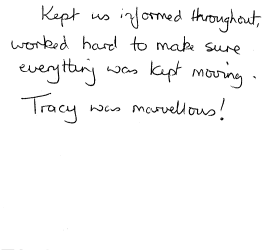 Kept us informed throughout,
worked hard to make sure
everything was kept moving.
Tracy was marvellous!